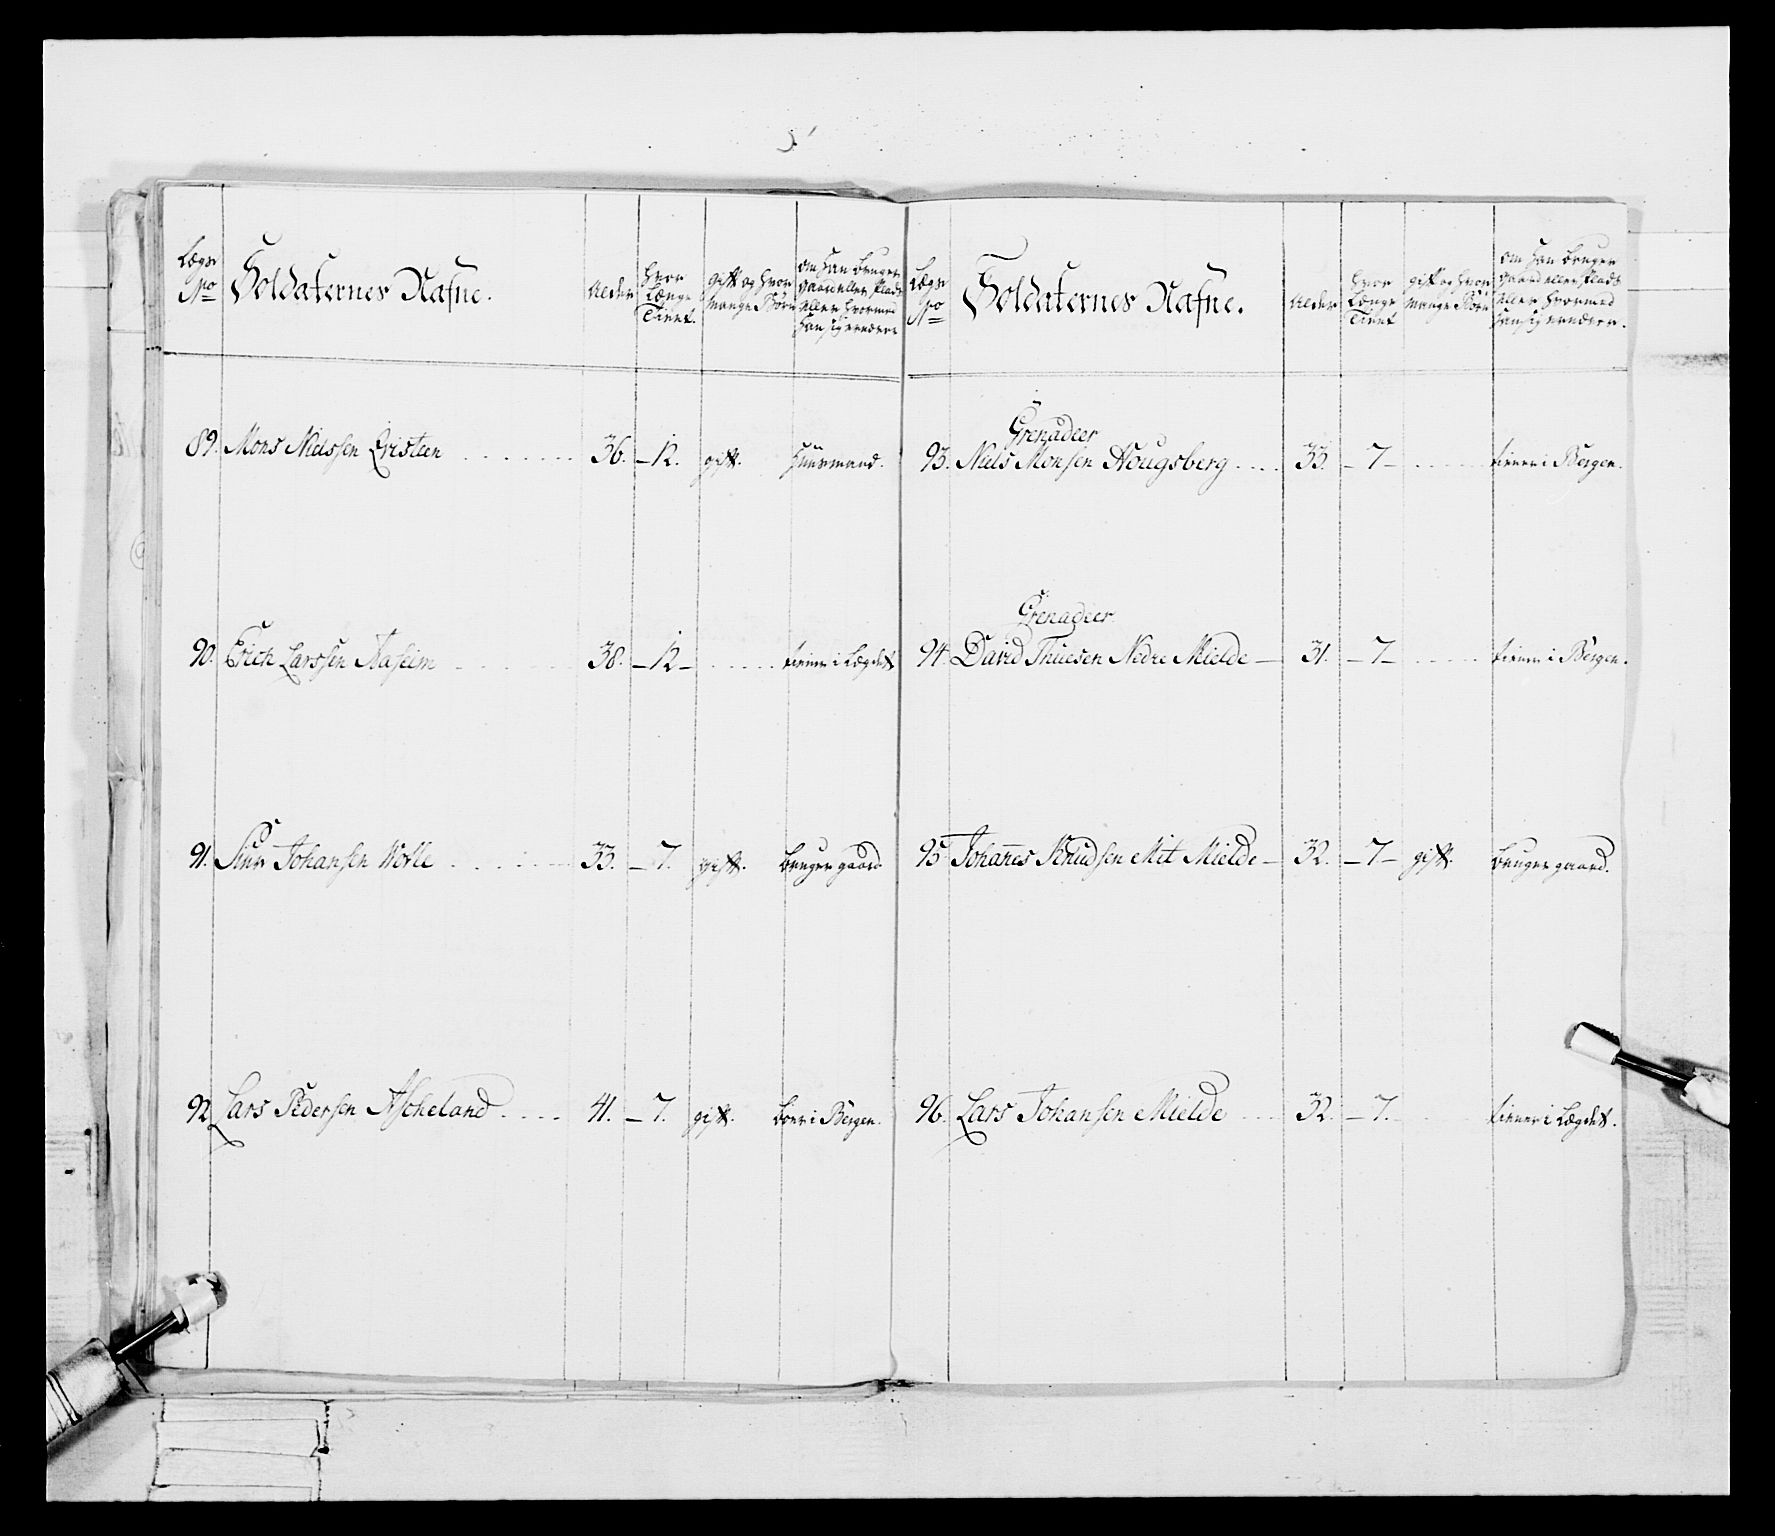 Lægs No
Soldaternes Nafne.
Alder
hvor Længe Tient.
gift og hvor mange Børn
om han bruger gaard eller Plads eller hvormed han sig ernærer
89. Mons Nielssen Qvisteen 36. 12. gift. Huusmand.
90. Erich Larssen Aaseim 38. 12 tiener i Lægdet
91. Siur Johansen Wølle 33. 7. gift. bruger gaard
92 Lars Pedersen Ascheland 41. 7. gift. boer i Bergen.
Lægs No
Soldaternes Nafne.
Alder
hvor Længe Tient
gift og hvor mange Børn
om han bruger gaard eller Plads eller hvormed han sig ernærer.
Grenadeer
93. Niels Monsen Hougsberg 33. 7 tiener i Bergen.
Grenadeer
94. David Thuesen Nedre Mielde 31. 7 tiener i Bergen.
95 Johannes Knudsen Mit Mielde 32. 7 gift. bruger gaard.
96. Lars Johansen Mielde 32. 7. tiener i Lægdet.